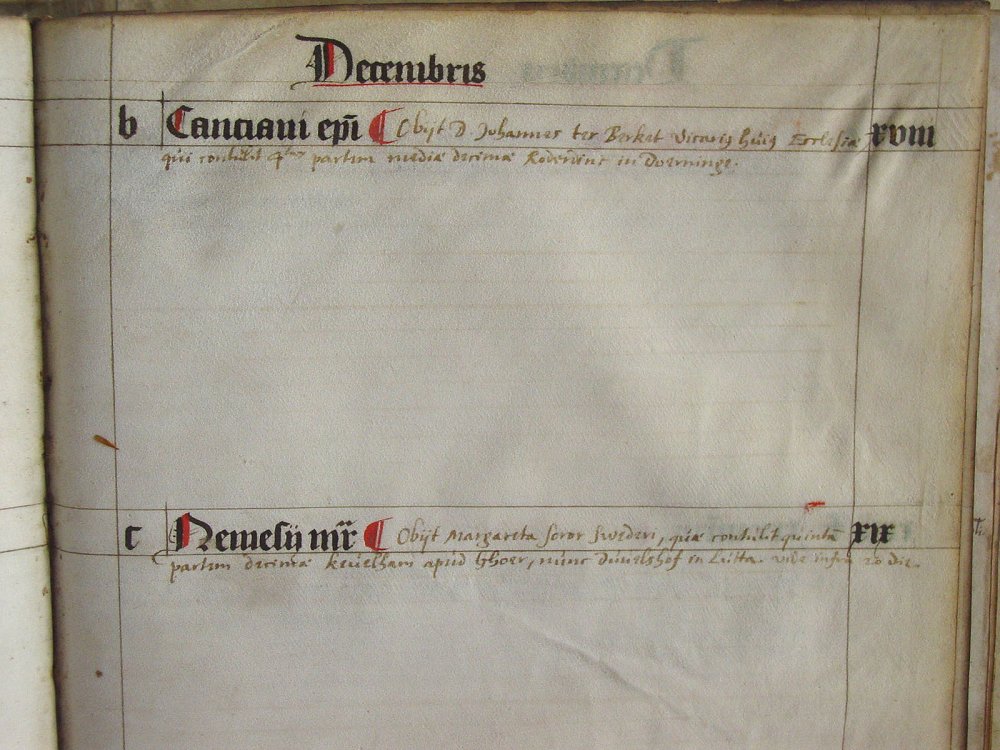 Decembris
b Canciani ep̄i Obijt D. Johannes ter Berket Vicari9 hui9 Ecclesiæ xviii
qui contulit partem mediæ decimæ in Doerninge.
c Nemesij mr̄ Obijt Margareta soror Swederi, quæ contulit quinta xix
partem decimæ kevelham apud Ghoer, nunc duvelshof in Lutta. vide infra 20 die.